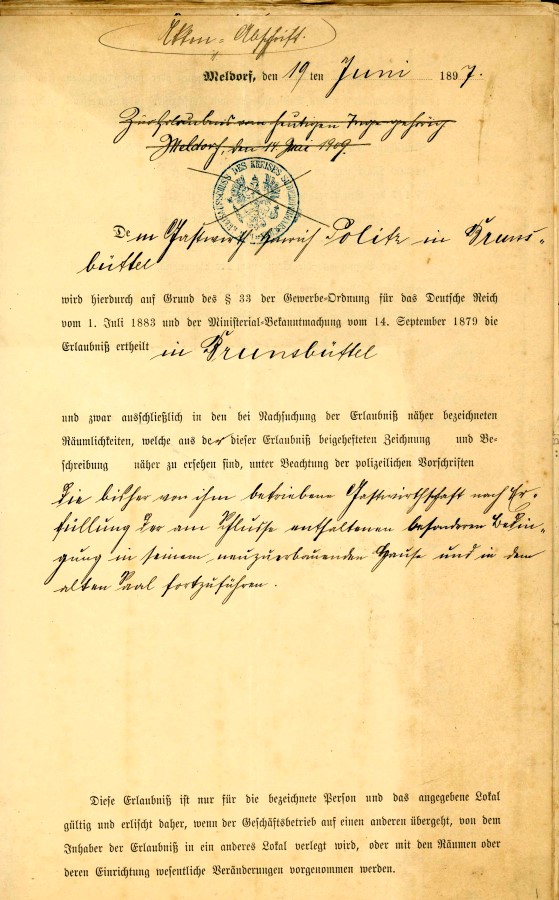 Akten-Abschrift.
Meldorf, den 19ten Juni 1897.
Zur Erlaubnis vom heutigen Tage gehörig
Meldorf, den 14. Mai 1909.
KREISAUSSCHUSS DES KREISES SÜDERDITHMARSCHEN
Dem Gastwirth Hinrich Politz in Bruns-
büttel
wird hierdurch auf Grund des § 33 der Gewerbe-Ordnung für das Deutsche Reich
vom 1. Juli 1883 und der Ministerial-Bekanntmachung vom 14. September 1879 die
Erlaubniß ertheilt in Brunsbüttel
und zwar ausschließlich in den bei Nachsuchung der Erlaubniß näher bezeichneten
Räumlichkeiten, welche aus der dieser Erlaubniß beigehefteten Zeichnung und Be-
schreibung näher zu ersehen sind, unter Beachtung der polizeilichen Vorschriften
die bisher von ihm betriebene Gastwirthschaft nach Er-
füllung der am Schlusse enthaltenen besonderen Bedin-
gung in seinem neuzuerbauenden Hause und in dem
alten Saal fortzuführen.
Diese Erlaubniß ist nur für die bezeichnete Person und das angegebene Lokal
gültig und erlischt daher, wenn der Geschäftsbetrieb auf einen anderen übergeht, von dem
Inhaber der Erlaubniß in ein anderes Lokal verlegt wird, oder mit den Räumen oder
deren Einrichtung wesentliche Veränderungen vorgenommen werden.